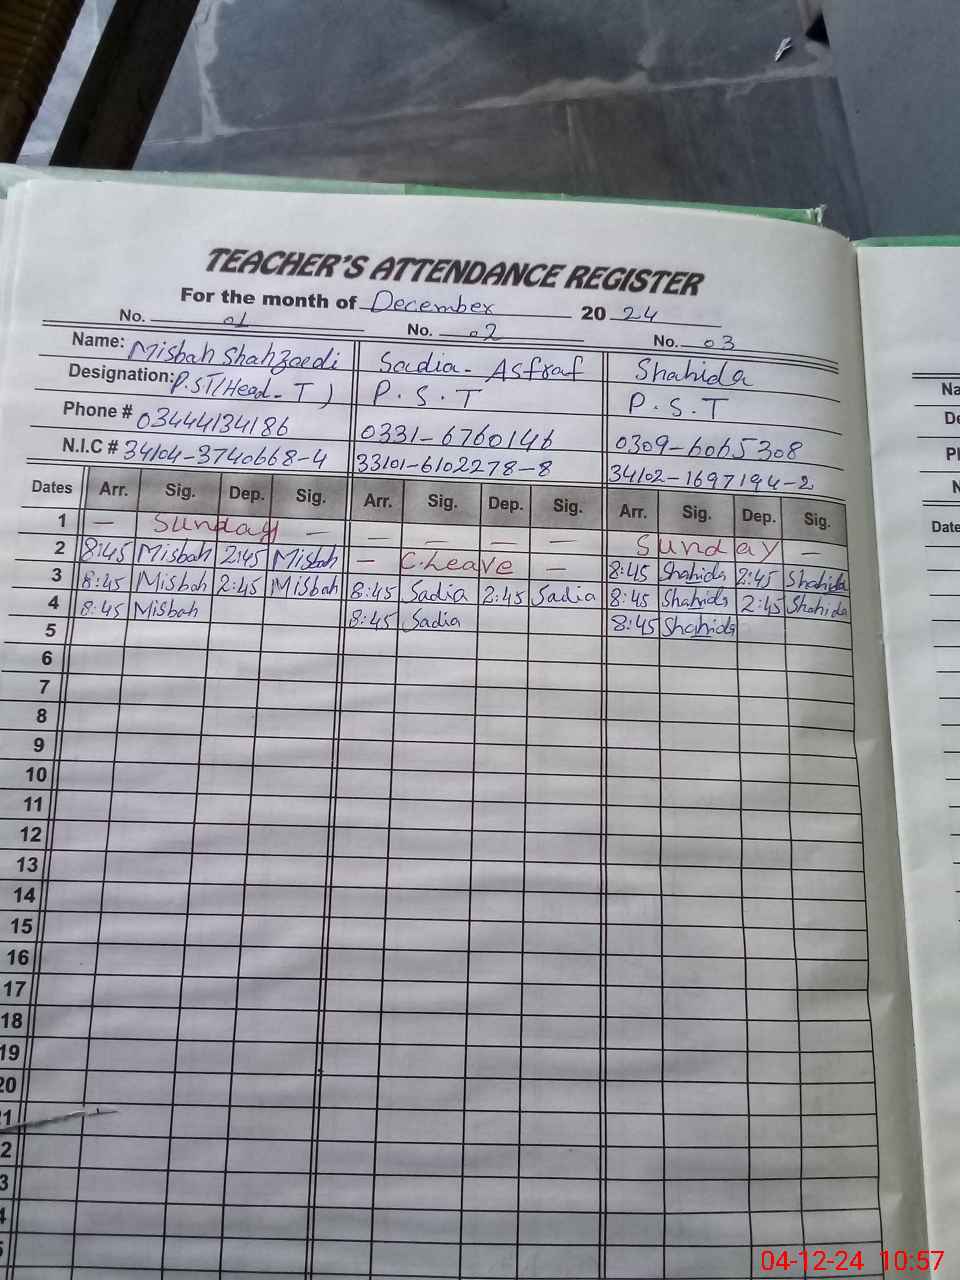 TEACHER'S ATTENDANCE REGISTER
For the month of December 2024
No. 01 No. 02 No. 03
Name: Misbah Shahzaedi Sadia- Asfraf Shahida
Designation: P.ST(Head-T) P.S.T P.S.T
Phone # 03444134186 0331-6760146 0309-6065308
N.I.C # 34104-3740668-4 33101-6102278-8 34102-1697194-2
Dates Arr. Sig. Dep. Sig. Arr. Sig. Dep. Sig. Arr. Sig. Dep. Sig.
1 — Sunday — — — — — Sunday —
2 8:45 Misbah 2:45 Misbah — C.Leave — 8:45 Shahida 2:45 Shahida
3 8:45 Misbah 2:45 Misbah 8:45 Sadia 2:45 Sadia 8:45 Shahida 2:45 Shahida
4 8:45 Misbah 8:45 Sadia 8:45 Shahida
5
6
7
8
9
10
11
12
13
14
15
16
17
18
19
20
1
2
3
4
5
Na
De
Ph
N
Date
04-12-24 10:57